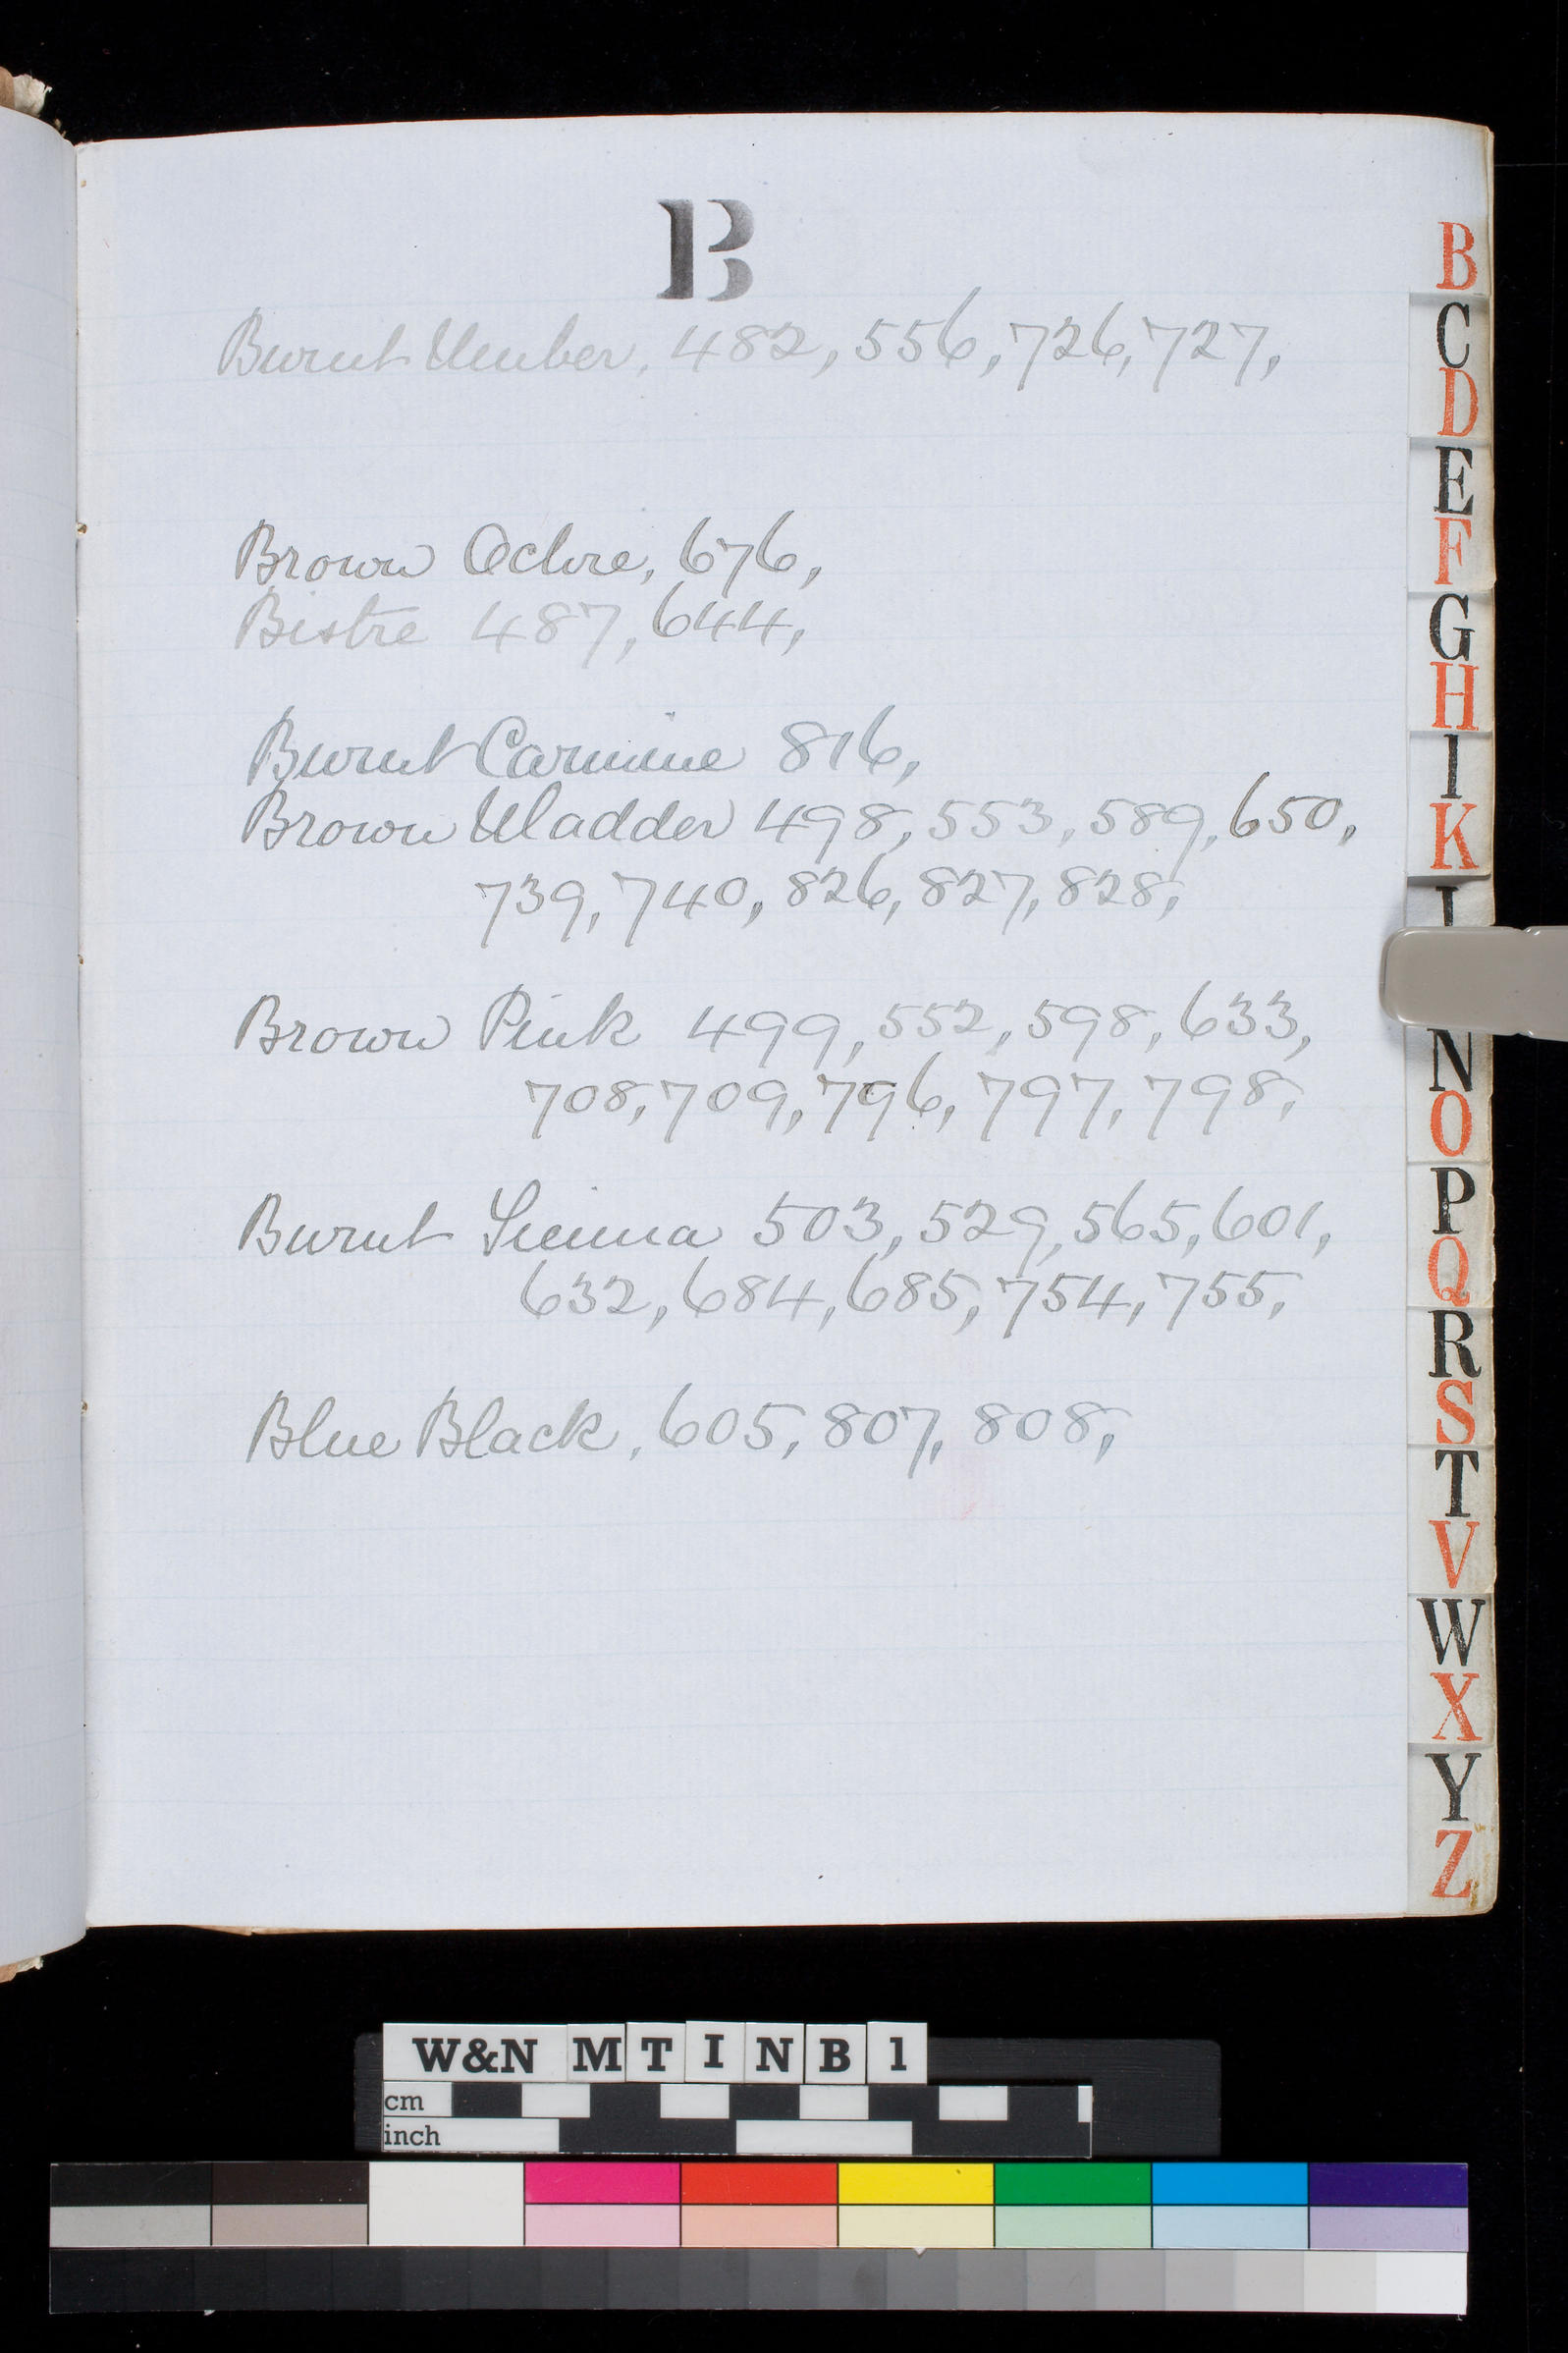 B
Burnt Umber, 482, 556, 726, 727,
Brown Ochre, 676,
Bistre 487, 644,
Burnt Carmine 816,
Brown Madder 498, 553, 589, 650,
739, 740, 826, 827, 828,
Brown Pink 499, 552, 598, 633,
708, 709, 796, 797, 798,
Burnt Sienna 503, 529, 565, 601,
632, 684, 685, 754, 755,
Blue Black, 605, 807, 808,
B
C
D
E
F
G
H
I
K
N
O
P
Q
R
S
T
V
W
X
Y
Z
W&N MTINB1
cm
inch